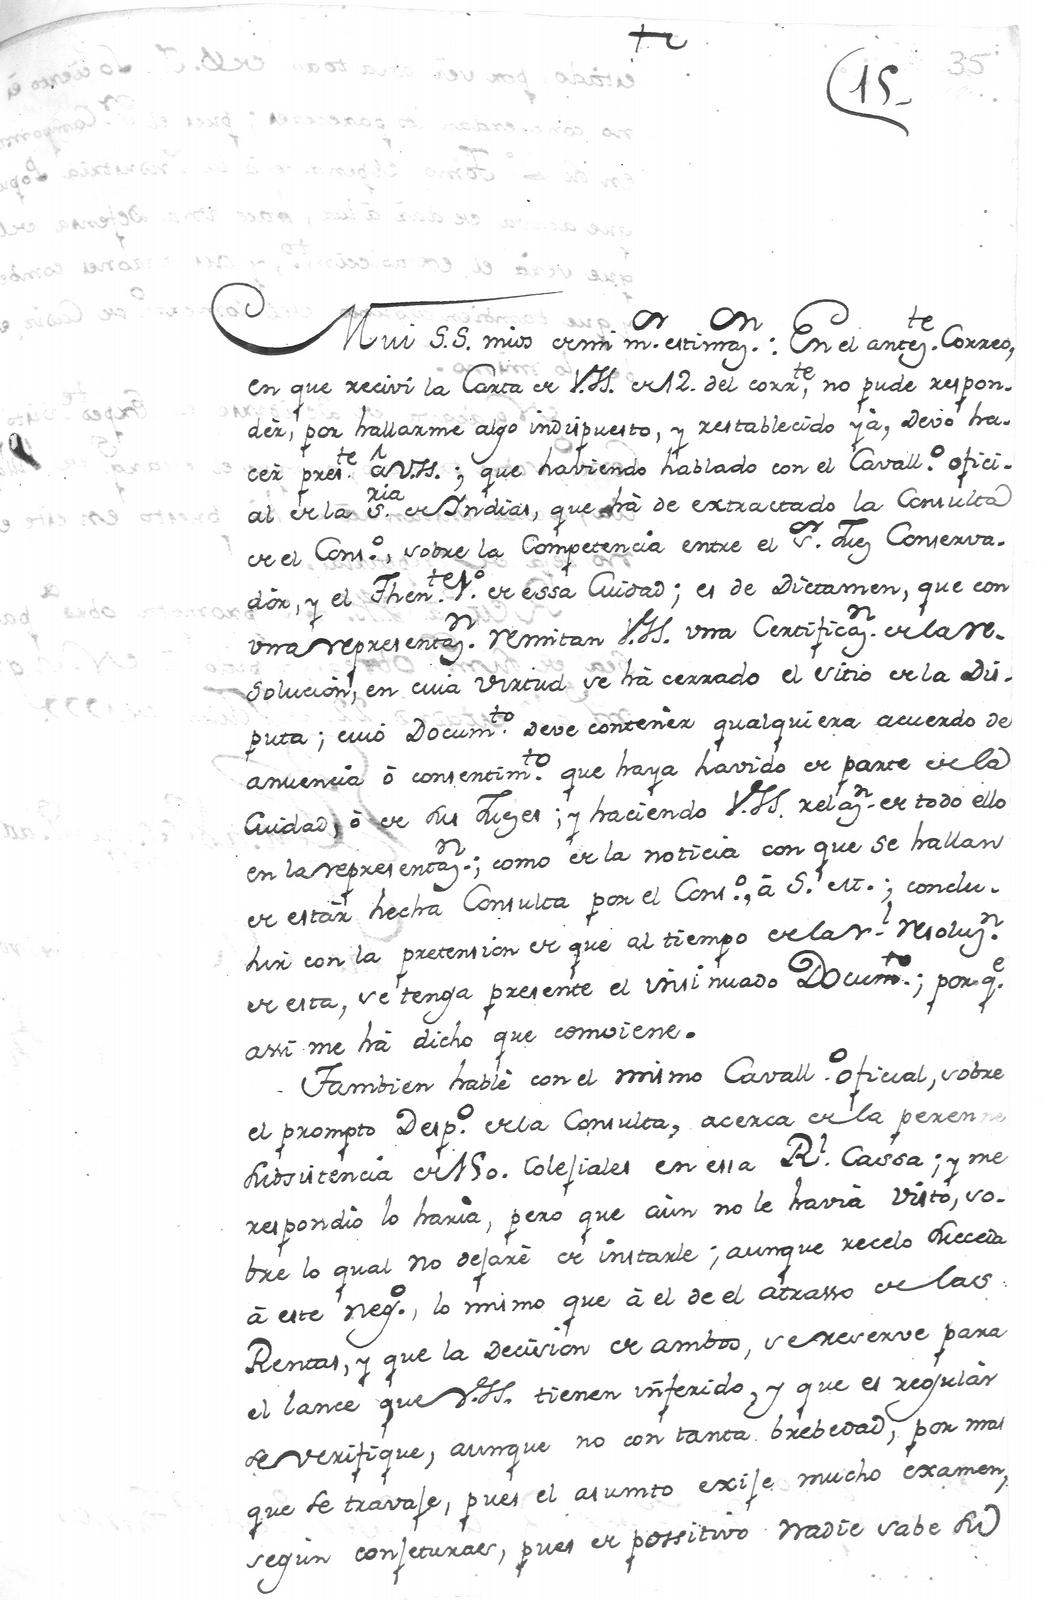 35
(15.
Mui S.S. mios de mi m.ʳ estimaz.ⁿ: En el antez.ᵗᵉ Correo,
en que reciví la Carta de V.SS. de 12. del corr.ᵗᵉ, no pude respon-
dér, por hallarme algo indispuesto, y restablecido yà, devo ha-
cér pres.ᵗᵉ à V.SS.; que haviendo hablado con el Cavall.º ofici-
al de la S.ʳⁱᵃ de Indias, que hà de extractado la Consulta
de el Cons.º, sobre la Competencia entre el S.ʳ Juez Conserva-
dór, y el Then.ᵗᵉ de essa Cuidad; es de Dictamen, que con
vna representaz.ⁿ remitan V.SS. vna Certificaz.ⁿ de la re-
solución, en cuia virtud se hà cerrado el sitio de la Dis-
puta; cuió Docum.ᵗᵒ deve contenér qualquiera acuerdo de
anuencia ò consentim.ᵗᵒ que haya havido de parte de la
Cuidad, ò de sus Juezes; y haciendo V.SS. relaz.ⁿ de todo ello
en la representaz.ⁿ; como de la noticia con que se hallan
de estár hecha Consulta por el Cons.º, à S. M.; conclu-
hir con la pretension de que al tiempo de la r.ˡ resoluz.ⁿ
de esta, se tenga presente el insinuado Docum.ᵗᵒ; por q.ᵉ
assi me hà dicho que comviene.
Tambien hablè con el mismo Cavall.º oficial, sobre
el prompto Desp.º de la Consulta, acerca de la perenne
subsistencia de 150. Colejiales en essa R.ˡ Cassa; y me
respondiò lo haria, pero que aùn no le havia visto, so-
bre lo qual no dejarè de instarle; aunque recelo suceda
à este neg.º, lo mismo que à el de el atrasso de las
Rentas, y que la decision de ambos, se reserve para
el lance que V.SS. tienen inferido, y que es regulár
se verifique, aunque no con tanta brebedad, por mas
que se travaje, pues el asumto exije mucho examen,
según conjeturas, pues de possitivo nadie sabe su